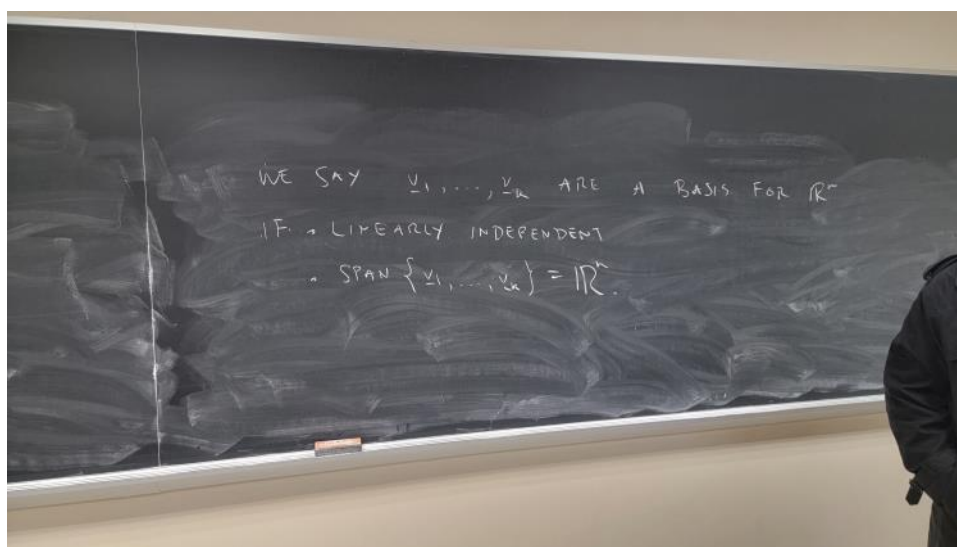 WE SAY v̲₁, ..., v̲ₖ ARE A BASIS FOR ℝⁿ
IF • LINEARLY INDEPENDENT
• SPAN {v̲₁, ..., v̲ₖ} = ℝⁿ.